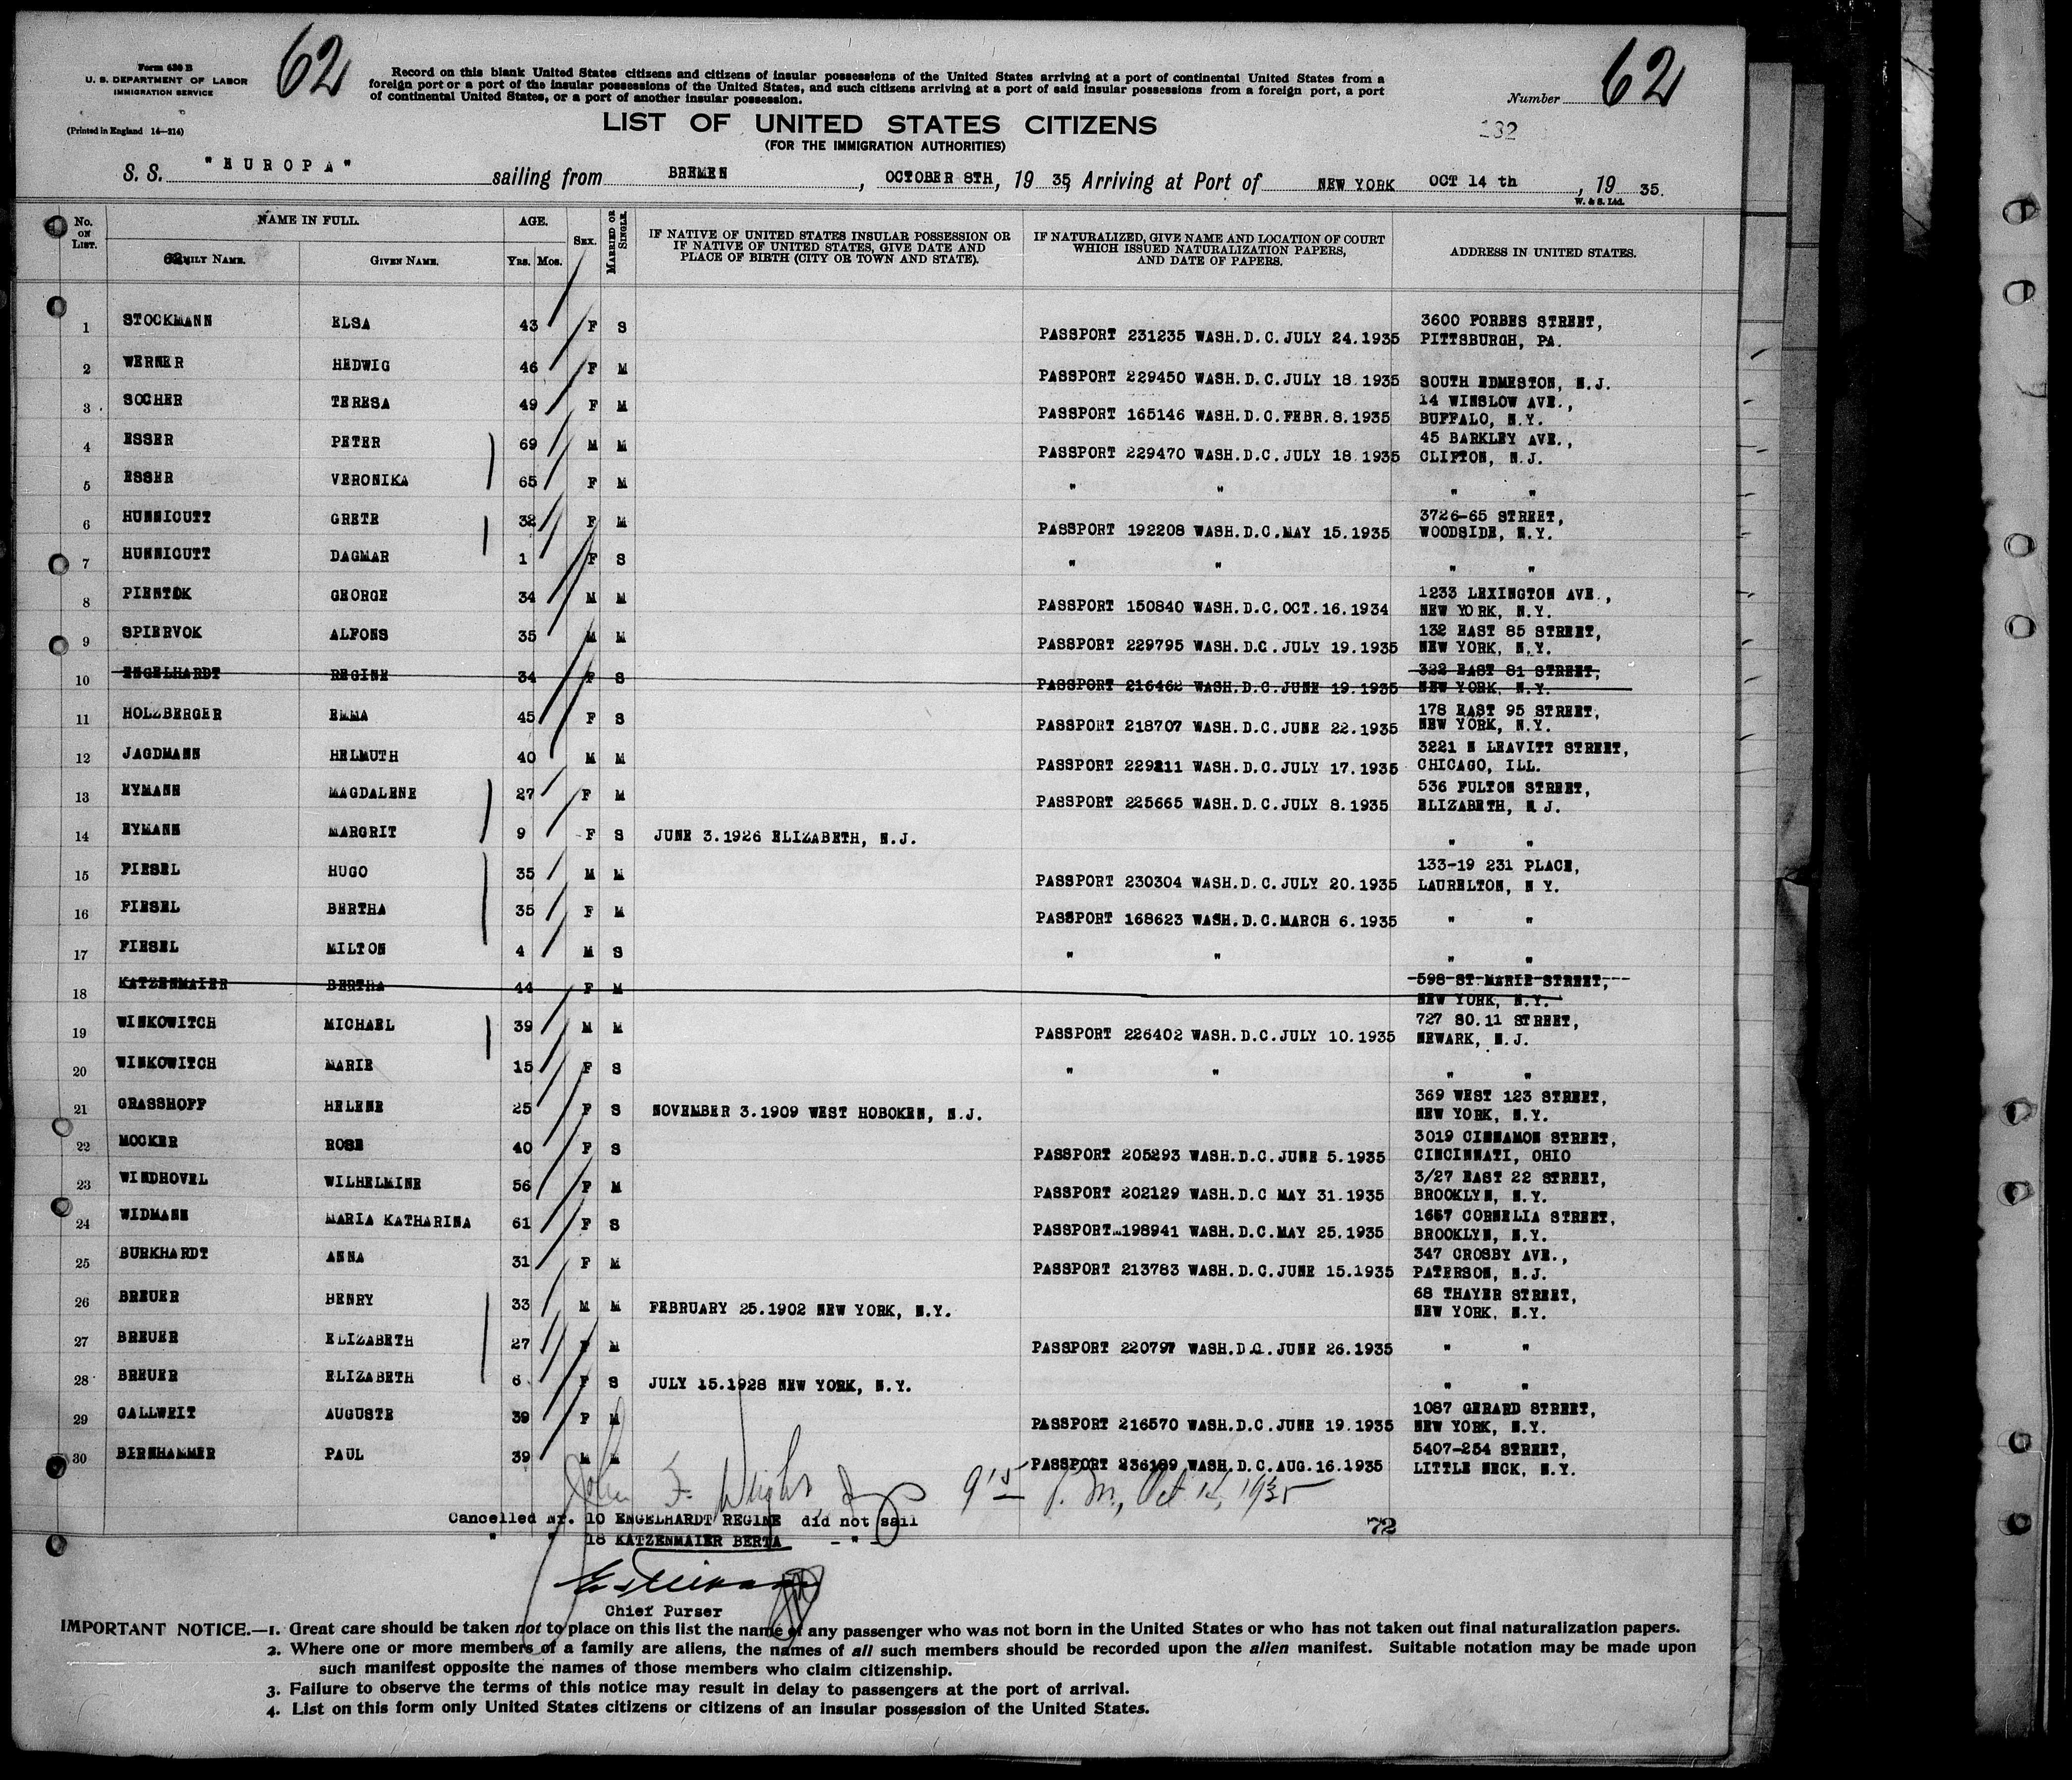 Form 630 B
U. S. DEPARTMENT OF LABOR
IMMIGRATION SERVICE
(Printed in England 14—214)
62
Record on this blank United States citizens and citizens of insular possessions of the United States arriving at a port of continental United States from a
foreign port or a port of the insular possessions of the United States, and such citizens arriving at a port of said insular possessions from a foreign port, a port
of continental United States, or a port of another insular possession.
Number 62
LIST OF UNITED STATES CITIZENS
(FOR THE IMMIGRATION AUTHORITIES)
S. S. "EUROPA" sailing from BREMEN, OCTOBER 8TH, 19 35, Arriving at Port of NEW YORK OCT 14 th, 19 35.
W. & S. Ltd.
No. ON LIST. NAME IN FULL. AGE. SEX. MARRIED OR SINGLE. IF NATIVE OF UNITED STATES INSULAR POSSESSION OR IF NATIVE OF UNITED STATES, GIVE DATE AND PLACE OF BIRTH (CITY OR TOWN AND STATE). IF NATURALIZED, GIVE NAME AND LOCATION OF COURT WHICH ISSUED NATURALIZATION PAPERS, AND DATE OF PAPERS. ADDRESS IN UNITED STATES.
FAMILY NAME. GIVEN NAME. Yrs. Mos.
1 STOCKMANN ELSA 43 F S PASSPORT 231235 WASH.D.C.JULY 24.1935 3600 FORBES STREET, PITTSBURGH, PA.
2 WERNER HEDWIG 46 F M PASSPORT 229450 WASH.D.C.JULY 18.1935 SOUTH EDMESTON, N.J.
3 SOCHER TERESA 49 F M PASSPORT 165146 WASH.D.C.FEBR.8.1935 14 WINSLOW AVE., BUFFALO, N.Y.
4 ESSER PETER 69 M M PASSPORT 229470 WASH.D.C.JULY 18.1935 45 BARKLEY AVE., CLIFTON, N.J.
5 ESSER VERONIKA 65 F M " " " "
6 HUNNICUTT GRETE 32 F M PASSPORT 192208 WASH.D.C.MAY 15.1935 3726-65 STREET, WOODSIDE, N.Y.
7 HUNNICUTT DAGMAR 1 F S " " " "
8 PIENTOK GEORGE 34 M M PASSPORT 150840 WASH.D.C.OCT.16.1934 1233 LEXINGTON AVE., NEW YORK, N.Y.
9 SPIERVOK ALFONS 35 M M PASSPORT 229795 WASH.D.C.JULY 19.1935 132 EAST 85 STREET, NEW YORK, N.Y.
10 ENGELHARDT REGINE 34 F S PASSPORT 216462 WASH.D.C.JUNE 19.1935 322 EAST 81 STREET, NEW YORK, N.Y.
11 HOLZBERGER EMMA 45 F S PASSPORT 218707 WASH.D.C.JUNE 22.1935 178 EAST 95 STREET, NEW YORK, N.Y.
12 JAGDMANN HELMUTH 40 M M PASSPORT 229211 WASH.D.C.JULY 17.1935 3221 N LEAVITT STREET, CHICAGO, ILL.
13 EYMANN MAGDALENE 27 F M PASSPORT 225665 WASH.D.C.JULY 8.1935 536 FULTON STREET, ELIZABETH, N J.
14 EYMANN MARGRIT 9 F S JUNE 3.1926 ELIZABETH, N.J. " "
15 FIESEL HUGO 35 M M PASSPORT 230304 WASH.D.C.JULY 20.1935 133-19 231 PLACE, LAURELTON, N Y.
16 FIESEL BERTHA 35 F M PASSPORT 168623 WASH.D.C.MARCH 6.1935 " "
17 FIESEL MILTON 4 M S " " " "
18 KATZENMAIER BERTHA 44 F M 598 ST.MARIE STREET, NEW YORK, N.Y.
19 WINKOWITCH MICHAEL 39 M M PASSPORT 226402 WASH.D.C.JULY 10.1935 727 SO.11 STREET, NEWARK, N.J.
20 WINKOWITCH MARIE 15 F S " " " "
21 GRASSHOFF HELENE 25 F S NOVEMBER 3.1909 WEST HOBOKEN, N.J. 369 WEST 123 STREET, NEW YORK, N.Y.
22 MOCKER ROSE 40 F S PASSPORT 205293 WASH.D.C.JUNE 5.1935 3019 CINNAMON STREET, CINCINNATI, OHIO
23 WINDHOVEL WILHELMINE 56 F M PASSPORT 202129 WASH.D.C MAY 31.1935 3/27 EAST 22 STREET, BROOKLYN, N.Y.
24 WIDMANN MARIA KATHARINA 61 F S PASSPORT 198941 WASH.D.C.MAY 25.1935 1657 CORNELIA STREET, BROOKLYN, N.Y.
25 BURKHARDT ANNA 31 F M PASSPORT 213783 WASH.D.C.JUNE 15.1935 347 CROSBY AVE., PATERSON, N.J.
26 BREUER HENRY 33 M M FEBRUARY 25.1902 NEW YORK, N.Y. 68 THAYER STREET, NEW YORK, N.Y.
27 BREUER ELIZABETH 27 F M PASSPORT 220797 WASH.D.C. JUNE 26.1935 " "
28 BREUER ELIZABETH 6 F S JULY 15.1928 NEW YORK, N.Y. " "
29 GALLWEIT AUGUSTE 39 F M PASSPORT 216570 WASH.D.C.JUNE 19.1935 1087 GERARD STREET, NEW YORK, N.Y.
30 BIRNHAMMER PAUL 39 M M PASSPORT 236189 WASH.D.C.AUG.16.1935 5407-254 STREET, LITTLE NECK, N.Y.
John F. Wright 9 15 P.M., Oct 14, 1935
Cancelled Nr. 10 ENGELHARDT REGINE did not sail
" " 18 KATZENMAIER BERTA - " -
72
Chief Purser
IMPORTANT NOTICE.—1. Great care should be taken not to place on this list the name of any passenger who was not born in the United States or who has not taken out final naturalization papers.
2. Where one or more members of a family are aliens, the names of all such members should be recorded upon the alien manifest. Suitable notation may be made upon
such manifest opposite the names of those members who claim citizenship.
3. Failure to observe the terms of this notice may result in delay to passengers at the port of arrival.
4. List on this form only United States citizens or citizens of an insular possession of the United States.